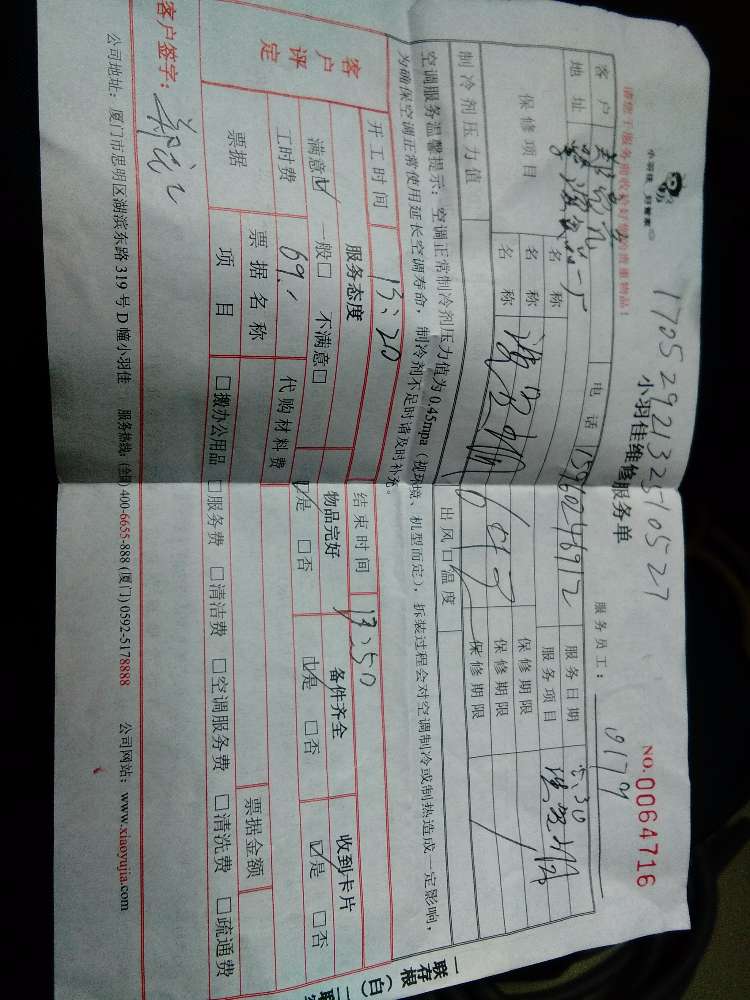 小羽佳 好管家
请您于服务前收检好您的贵重物品!
170529213251052７
小羽佳维修服务单
NO.0064716
服务员工: 0179
客户
电话 15960246912
服务日期 5.30
地址
服务项目
保修项目
名称
保修期限
名称
保修期限
名称
保修期限
制冷剂压力值
出风口温度
空调服务温馨提示:空调正常制冷剂压力值为0.45mpa(视环境、机型而定),拆装过程会对空调制冷或制热造成一定影响,
为确保空调正常使用延长空调寿命,制冷剂不足时请及时补充。
开工时间 13:20
结束时间 13:50
客户评定
服务态度
物品完好
备件齐全
收到卡片
满意☑ 一般□ 不满意□
☑是 □否
☑是 □否
☑是 □否
工时费 69.
代购材料费
票据
票据名称
票据金额
项目
□搬办公用品 □服务费 □清洁费 □空调服务费 □清洗费 □疏通费
客户签字:
公司地址:厦门市思明区湖滨东路319号D幢小羽佳 服务热线:(全国)400-6655-888 (厦门) 0592-5178888 公司网站:www.xiaoyujia.com
一联存根(白)